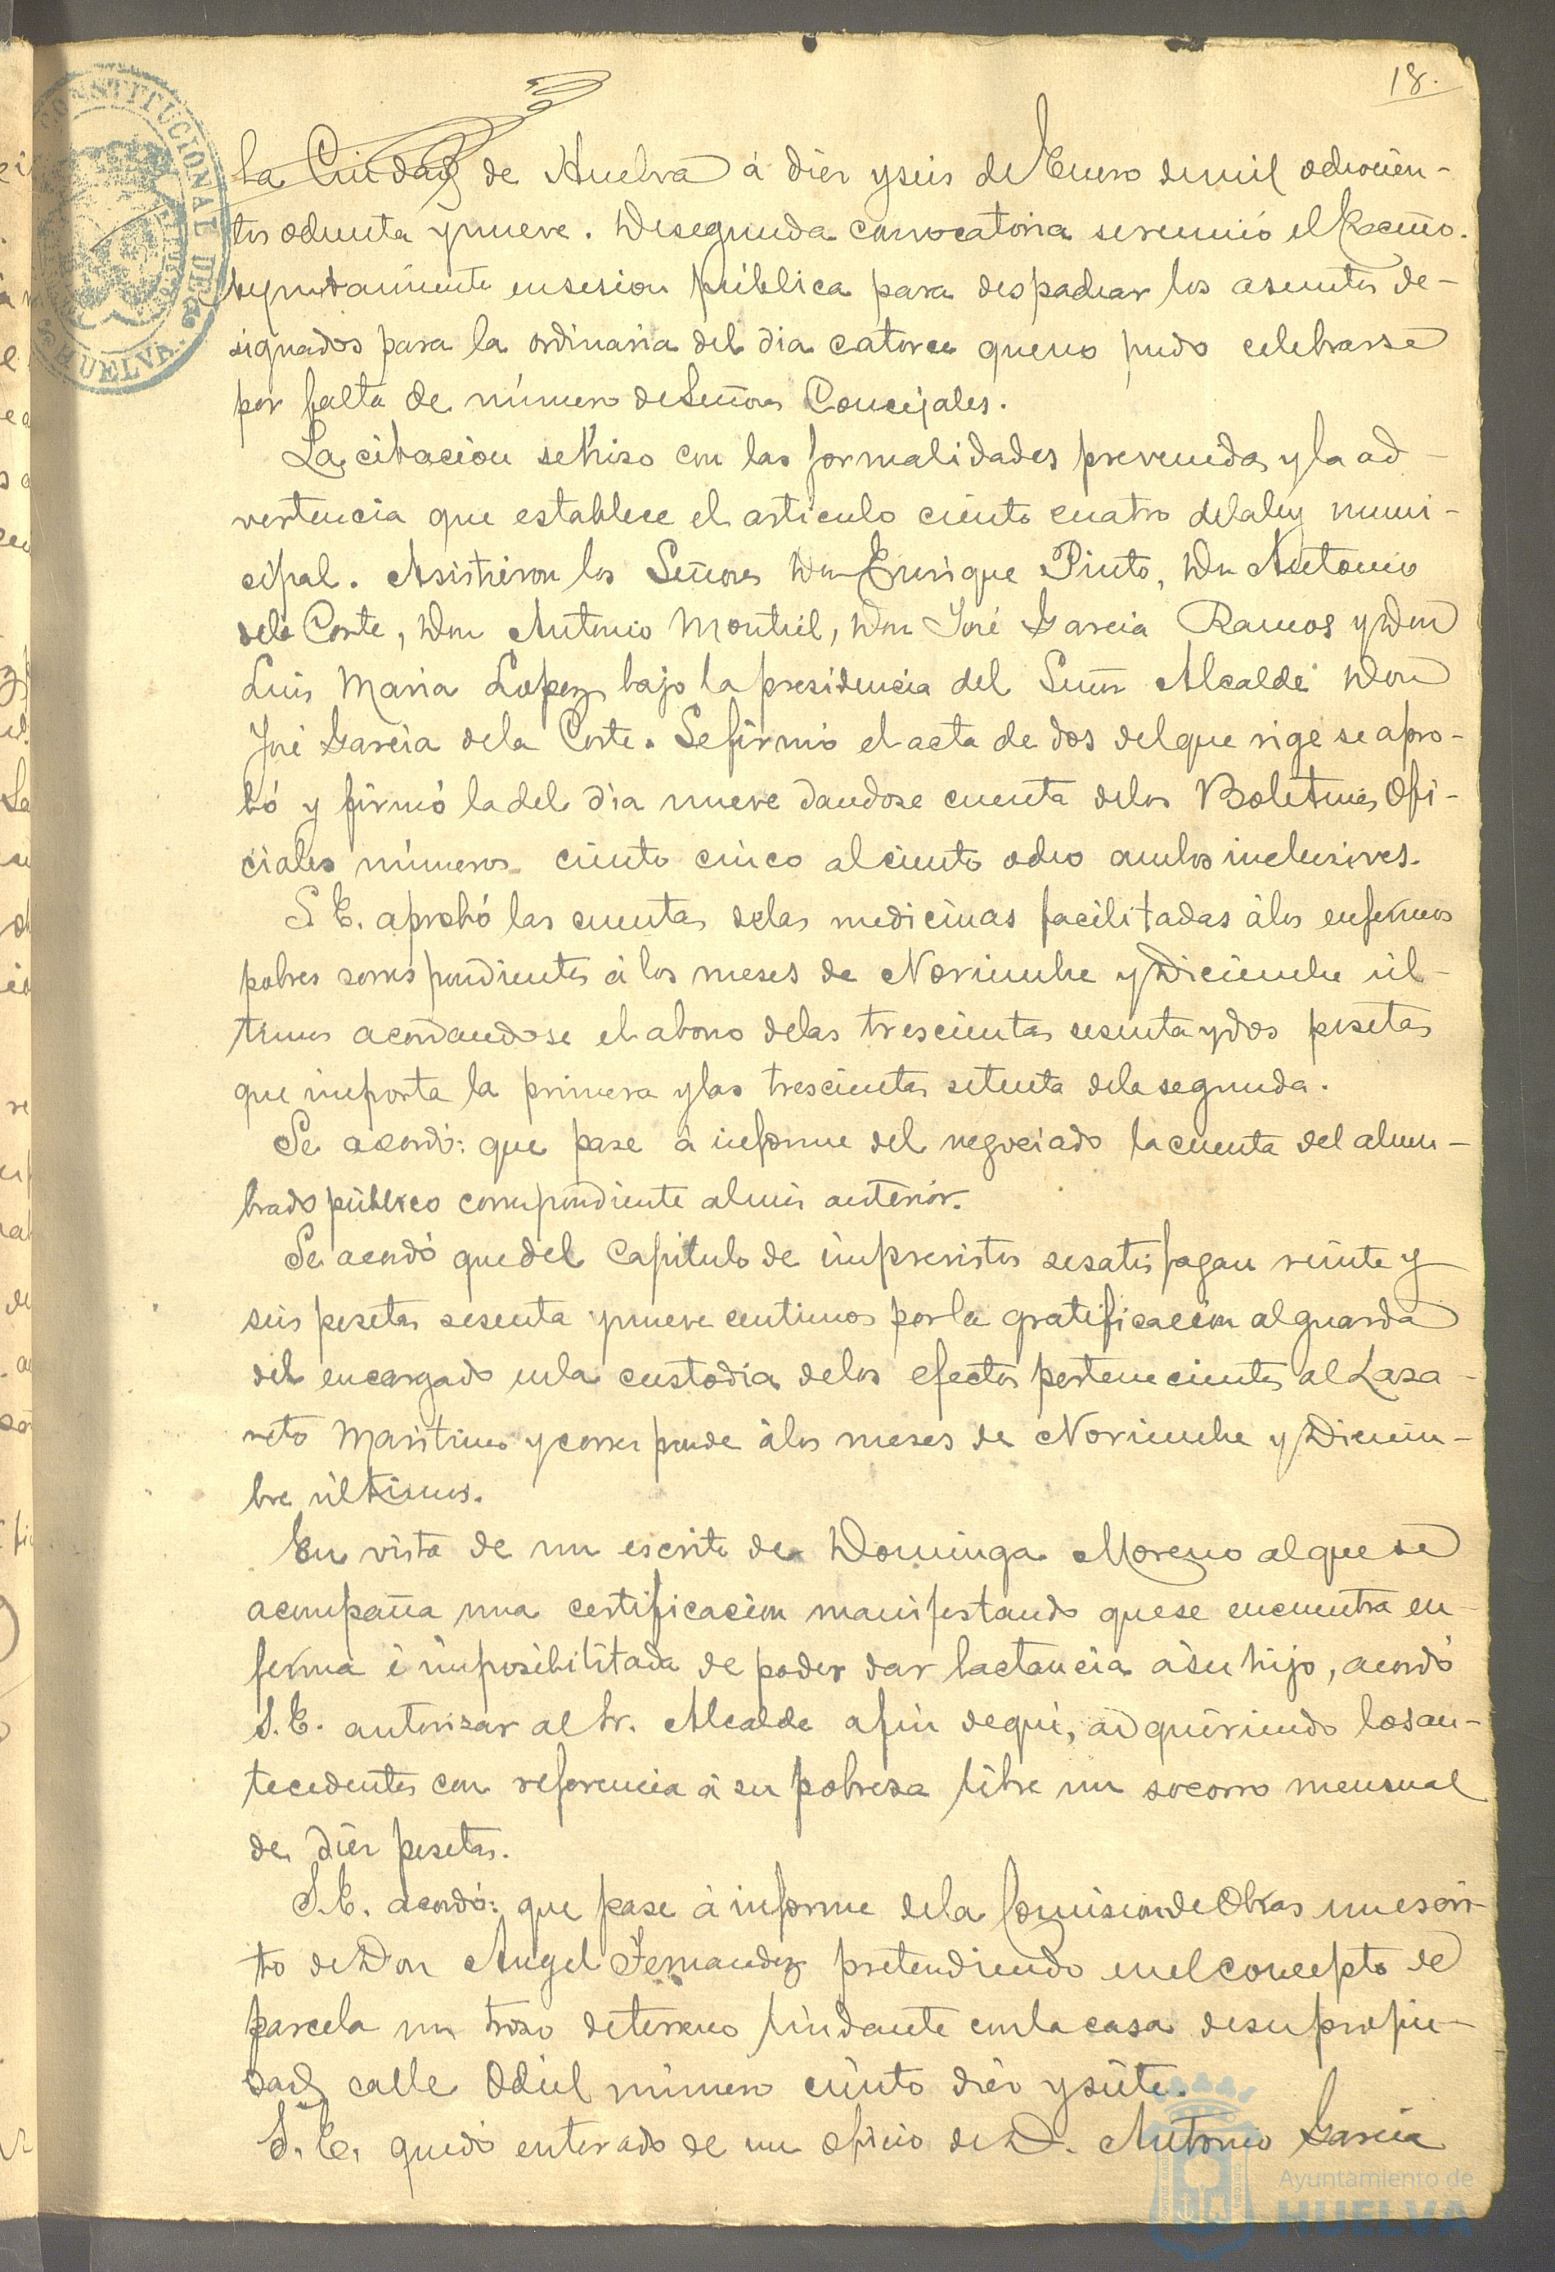 18.
CONSTITUCIONAL DE
HUELVA.
La Ciudad de Huelva á diez y seis de Enero de mil ochocien-
tos ochenta y nueve. De segunda convocatoria se reunió el Excmo.
Ayuntamiento en sesion pública para despachar los asuntos de-
signados para la ordinaria del dia catorce que no pudo celebrarse
por falta de número de Señores Concejales.
La citacion se hizo con las formalidades prevenidas y la ad-
vertencia que establece el articulo ciento cuatro de la ley muni-
cipal. Asistieron los Señores Don Enrique Pinto, Don Antonio
de la Corte, Don Antonio Montiel, Don José Garcia Ramos y Don
Luis Maria Lopez bajo la presidencia del Señor Alcalde Don
José Garcia de la Corte. Se firmó el acta de dos del que rige se apro-
bó y firmó la del dia nueve dandose cuenta de los Boletines Ofi-
ciales números ciento cinco al ciento ocho ambos inclusives.
S. E. aprobó las cuentas de las medicinas facilitadas á los enfermos
pobres correspondientes á los meses de Noviembre y Diciembre úl-
timos acordandose el abono de las trescientas sesenta y dos pesetas
que importa la primera y las trescientas setenta de la segunda.
Se acordó: que pase á informe del negociado la cuenta del alum-
brado público correspondiente al mes anterior.
Se acordó que del Capitulo de imprevistos se satisfagan veinte y
seis pesetas sesenta y nueve centimos por la gratificacion al guarda
del encargado en la custodia de los efectos pertenecientes al Laza-
reto Maritimo y corresponde á los meses de Noviembre y Diciem-
bre últimos.
En vista de un escrito de Dominga Moreno al que se
acompaña una certificacion manifestando que se encuentra en-
ferma é imposibilitada de poder dar lactancia á su hijo, acordó
S. E. autorizar al Sr. Alcalde a fin de qui, adquiriendo los an-
tecedentes con referencia á su pobreza libre un socorro mensual
de diez pesetas.
S. E. acordó: que pase á informe de la Comision de Obras un escri-
to de Don Angel Fernandez pretendiendo en el concepto de
parcela un trozo de terreno lindante con la casa de su propie-
dad calle Odiel número ciento diez y siete.
S. E. quedó enterado de un oficio de D. Antonio Garcia
Ayuntamiento de
HUELVA